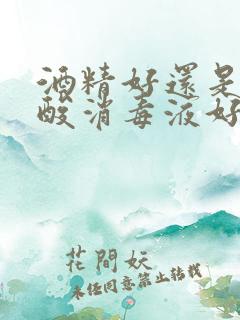 酒精好還是
酸消毒液好
花間妖
未经同意禁止转载